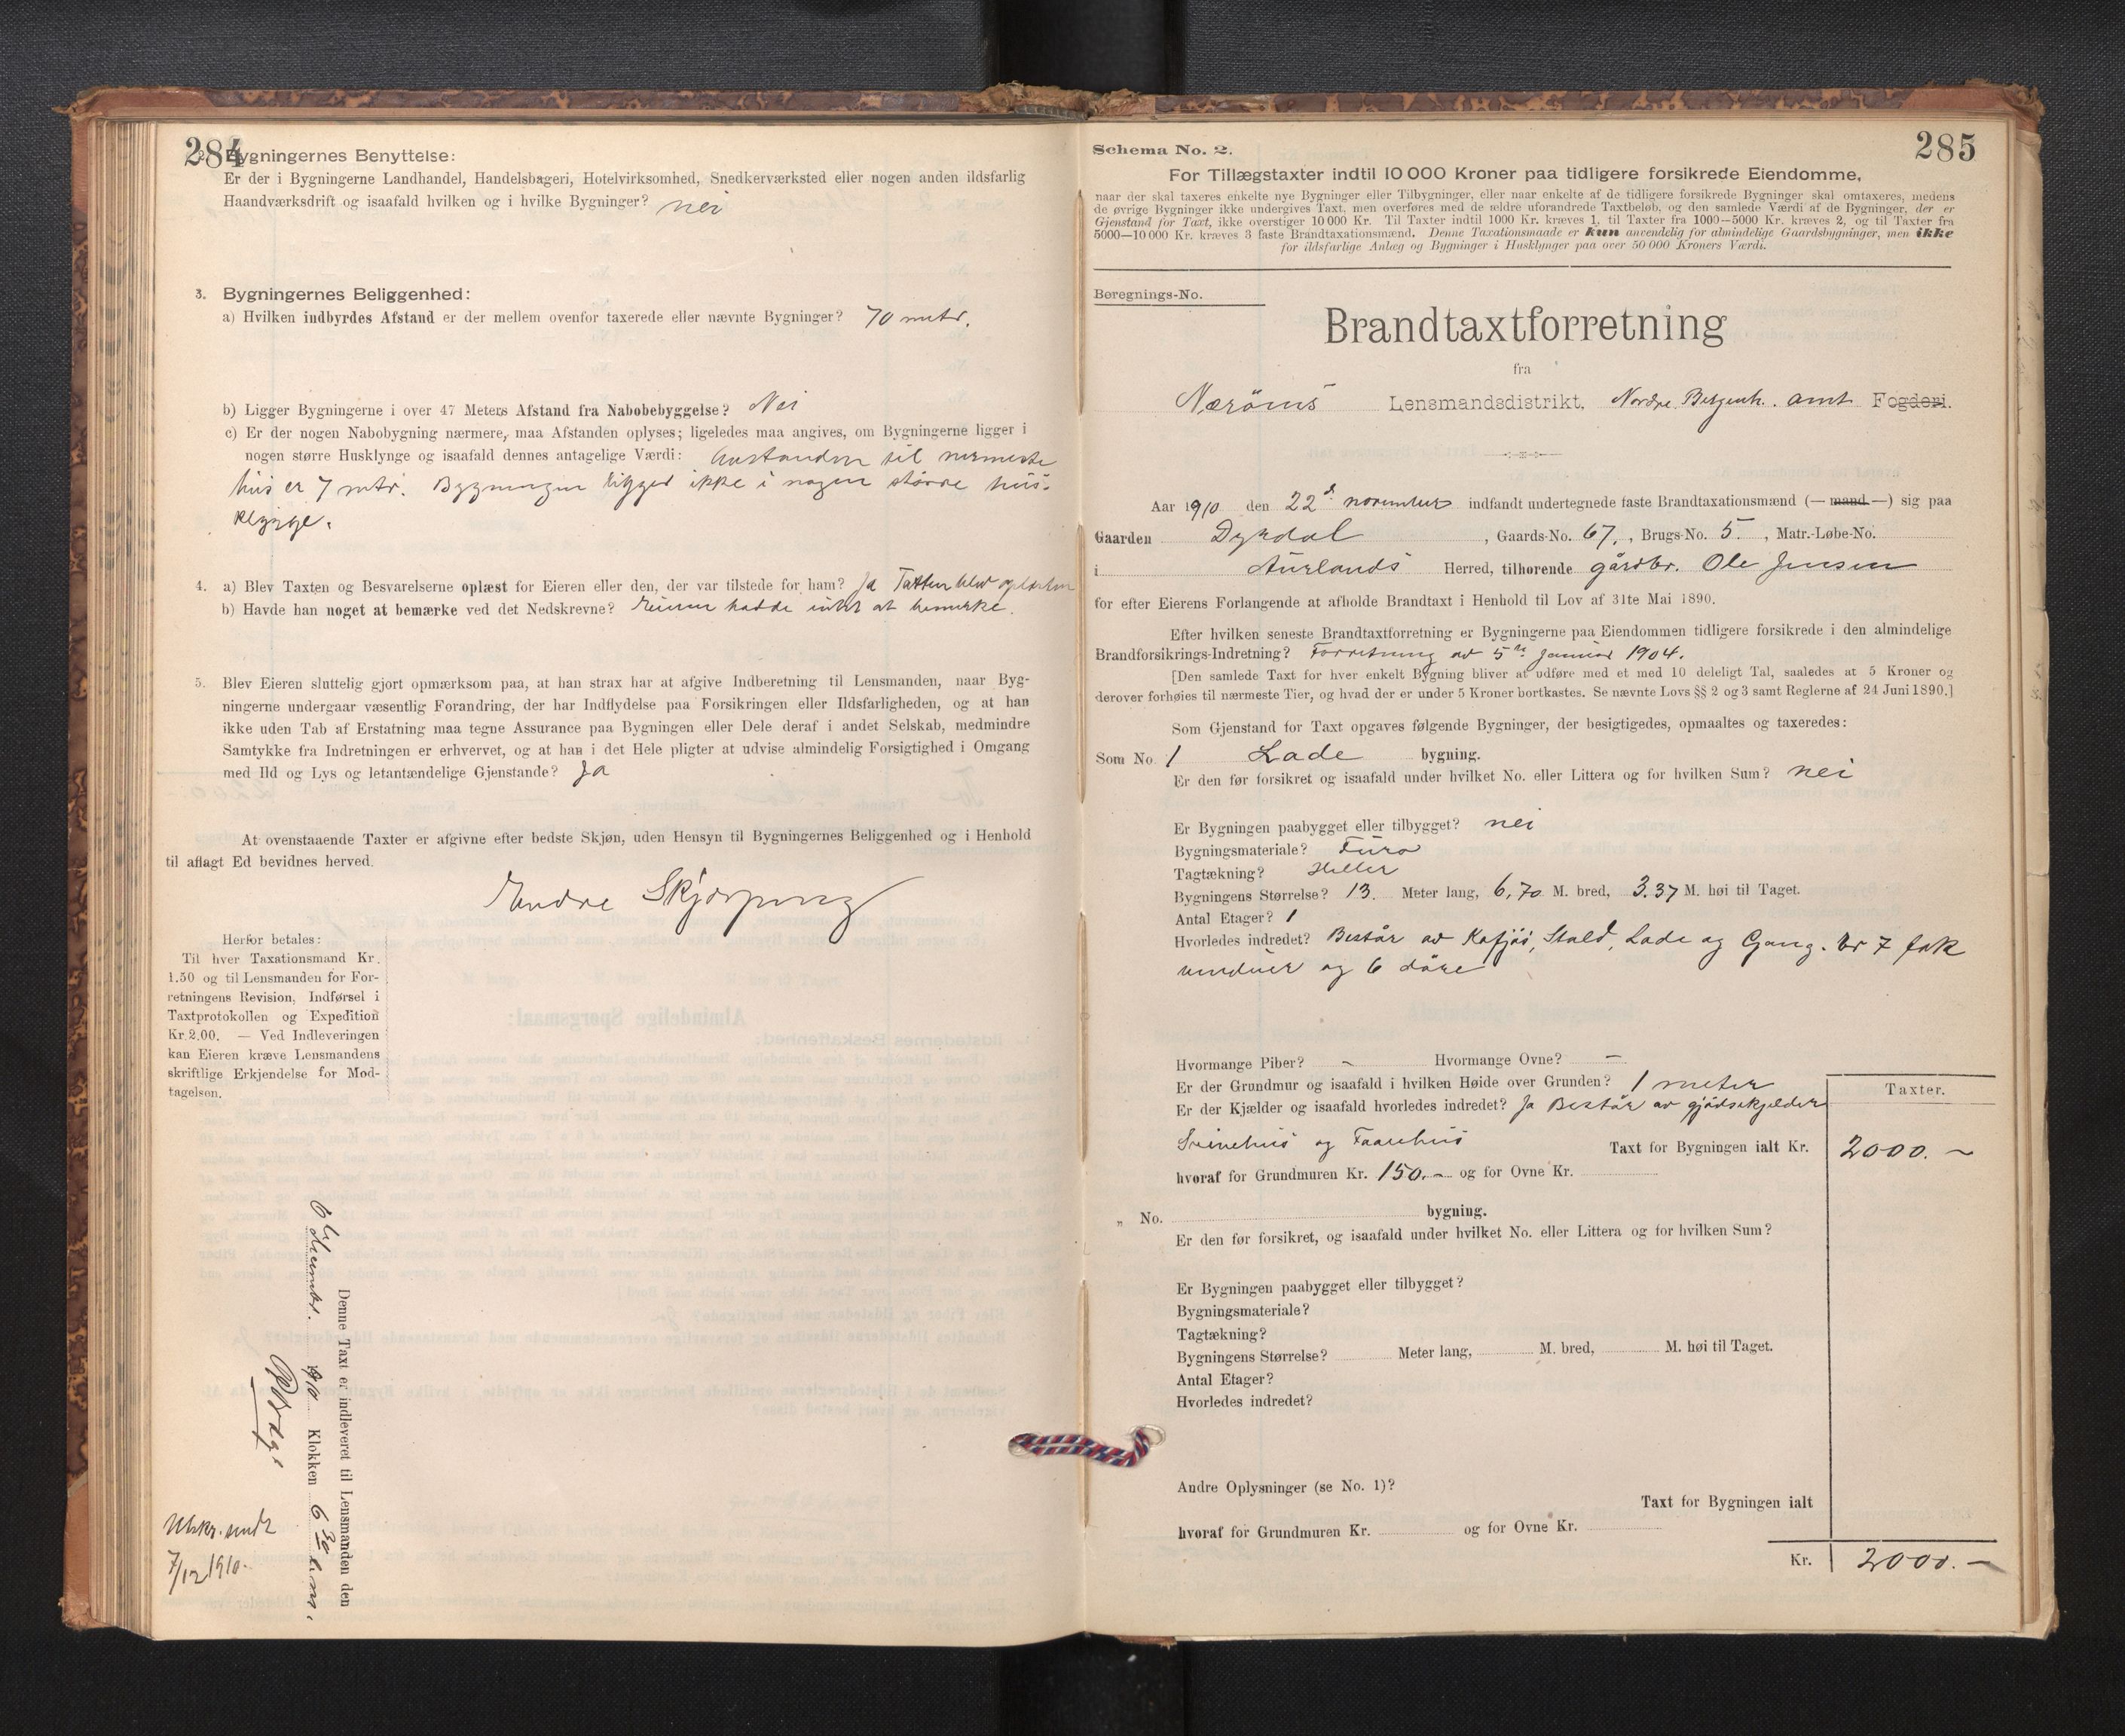 284
2. Bygningernes Benyttelse:
Er der i Bygningerne Landhandel, Handelsbageri, Hotelvirksomhed, Snedkerværksted eller nogen anden ildsfarlig
Haandværksdrift og isaafald hvilken og i hvilke Bygninger? nei
3. Bygningernes Beliggenhed:
a) Hvilken indbyrdes Afstand er der mellem ovenfor taxerede eller nævnte Bygninger? 70 mtr.
b) Ligger Bygningerne i over 47 Meters Afstand fra Nabobebyggelse? Nei
c) Er der nogen Nabobygning nærmere, maa Afstanden oplyses; ligeledes maa angives, om Bygningerne ligger i
nogen større Husklynge og isaafald dennes antagelige Værdi: Avstanden til nærmeste
hus er 7 mtr. Bygningen ligger ikke i nogen større hus-
klynge.
4. a) Blev Taxten og Besvarelserne oplæst for Eieren eller den, der var tilstede for ham? Ja Taxten blev oplæst
b) Havde han noget at bemærke ved det Nedskrevne? Eieren hadde intet at bemerke.
5. Blev Eieren sluttelig gjort opmærksom paa, at han strax har at afgive Indberetning til Lensmanden, naar Byg-
ningerne undergaar væsentlig Forandring, der har Indflydelse paa Forsikringen eller Ildsfarligheden, og at han
ikke uden Tab af Erstatning maa tegne Assurance paa Bygningen eller Dele deraf i andet Selskab, medmindre
Samtykke fra Indretningen er erhvervet, og at han i det Hele pligter at udvise almindelig Forsigtighed i Omgang
med Ild og Lys og letantændelige Gjenstande? Ja
At ovenstaaende Taxter er afgivne efter bedste Skjøn, uden Hensyn til Bygningernes Beliggenhed og i Henhold
til aflagt Ed bevidnes herved.
Endre Skjerping
Herfor betales:
Til hver Taxationsmand Kr.
1.50 og til Lensmanden for For-
retningens Revision, Indførsel i
Taxtprotokollen og Expedition
Kr. 2.00. — Ved Indleveringen
kan Eieren kræve Lensmandens
skriftlige Erkjendelse for Mod-
tagelsen.
Denne Taxt er indleveret til Lensmanden den
6te december. 1910 Klokken 6 30 e.m.
Utskr. sendt
7/12 1910.
285
Schema No. 2.
For Tillægstaxter indtil 10 000 Kroner paa tidligere forsikrede Eiendomme,
naar der skal taxeres enkelte nye Bygninger eller Tilbygninger, eller naar enkelte af de tidligere forsikrede Bygninger skal omtaxeres, medens
de øvrige Bygninger ikke undergives Taxt, men overføres med de ældre uforandrede Taxtbeløb, og den samlede Værdi af de Bygninger, der er
Gjenstand for Taxt, ikke overstiger 10 000 Kr. Til Taxter indtil 1000 Kr. kræves 1, til Taxter fra 1000—5000 Kr. kræves 2, og til Taxter fra
5000—10 000 Kr. kræves 3 faste Brandtaxationsmænd. Denne Taxationsmaade er kun anvendelig for almindelige Gaardsbygninger, men ikke
for ildsfarlige Anlæg og Bygninger i Husklynger paa over 50 000 Kroners Værdi.
Beregnings-No.
Brandtaxtforretning
fra
Nærøens Lensmandsdistrikt, Nordre Bergenh. amt Fogderi.
Aar 1910 den 22d november indfandt undertegnede faste Brandtaxationsmænd (— mand —) sig paa
Gaarden Dyrdal, Gaards-No. 67, Brugs-No. 5., Matr.-Løbe-No.
i Aurlands Herred, tilhørende gårdbr. Ole Jensen
for efter Eierens Forlangende at afholde Brandtaxt i Henhold til Lov af 31te Mai 1890.
Efter hvilken seneste Brandtaxtforretning er Bygningerne paa Eiendommen tidligere forsikrede i den almindelige
Brandforsikrings-Indretning? Forretning av 5te Januar 1904.
[Den samlede Taxt for hver enkelt Bygning bliver at udføre med et med 10 deleligt Tal, saaledes at 5 Kroner og
derover forhøies til nærmeste Tier, og hvad der er under 5 Kroner bortkastes. Se nævnte Lovs §§ 2 og 3 samt Reglerne af 24 Juni 1890.]
Som Gjenstand for Taxt opgaves følgende Bygninger, der besigtigedes, opmaaltes og taxeredes:
Som No. 1 Lade bygning.
Er den før forsikret og isaafald under hvilket No. eller Littera og for hvilken Sum? nei
Er Bygningen paabygget eller tilbygget? nei
Bygningsmateriale? Furu
Tagtækning? Heller
Bygningens Størrelse? 13. Meter lang, 6,70 M. bred, 3.37 M. høi til Taget.
Antal Etager? 1
Hvorledes indredet? Består av Kufjøs, Stald, Lade og Gang. Er 7 fak
vinduer og 6 døre
Hvormange Piber? - Hvormange Ovne? -
Er der Grundmur og isaafald i hvilken Høide over Grunden? 1 meter
Er der Kjælder og isaafald hvorledes indredet? Ja Består av gjødselkjelder
Svinehus og Faarehus
Taxter.
Taxt for Bygningen ialt Kr. 2000. -
hvoraf for Grundmuren Kr. 150.- og for Ovne Kr.
„ No. bygning.
Er den før forsikret, og isaafald under hvilket No. eller Littera og for hvilken Sum?
Er Bygningen paabygget eller tilbygget?
Bygningsmateriale?
Tagtækning?
Bygningens Størrelse? Meter lang, M. bred, M. høi til Taget.
Antal Etager?
Hvorledes indredet?
Andre Oplysninger (se No. 1)?
Taxt for Bygningen ialt
hvoraf for Grundmuren Kr. og for Ovne Kr.
Kr. 2000. -